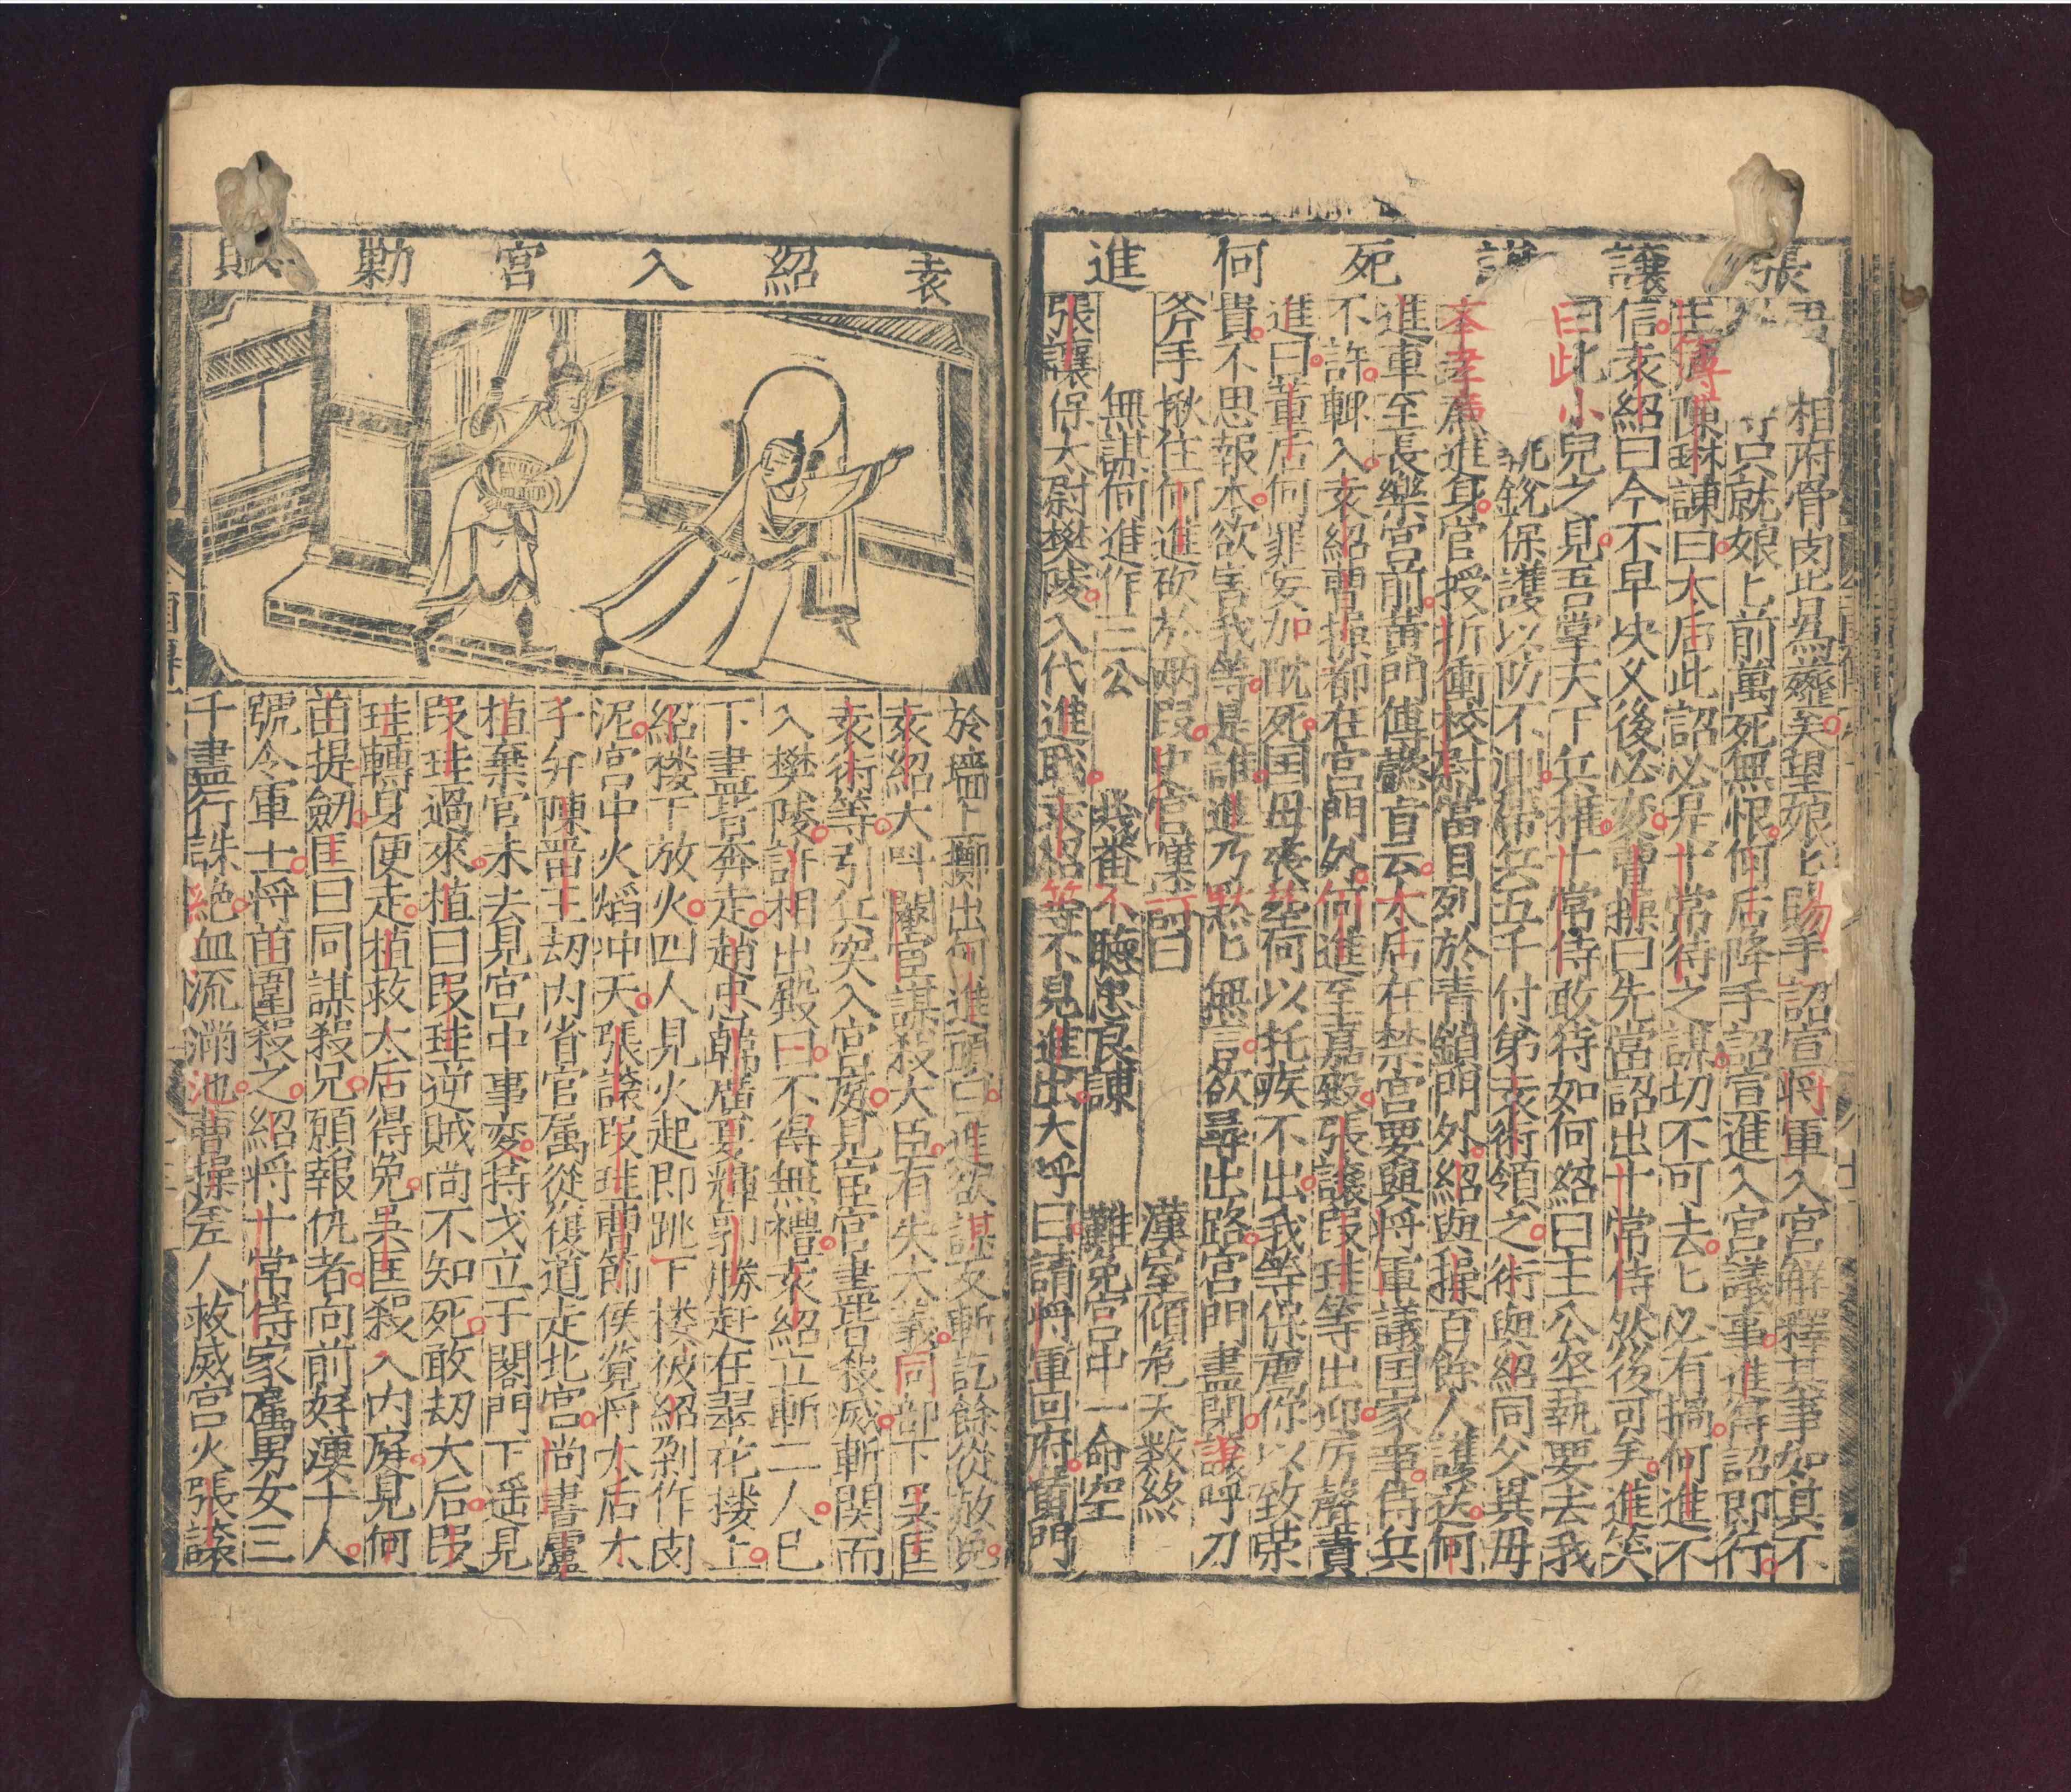 張讓謀死何進
相府骨肉皆為虀矣望娘匕賜手詔宣將軍入宮解釋其事如其不
只就娘上前萬死無恨何后降手詔宣進入宮議事進得詔即行
主簿陳琳諫曰太后此詔必是十常侍之謀切不可去匕必有禍何進不
信袁紹曰今不早决父後必变曹操曰先當詔出十常侍然後可矣進笑
曰此小兒之見吾掌天下兵權十常侍敢待如何紹曰主公坚執要去我
銳保護以防不測常兵五千付弟袁術領之術與紹同父異母
本孝廉進身官授折衝校尉當日列於青鎖門外紹與操百餘人護送何
進車至長樂宮前黃門傳懿旨云太后在禁宮要與將軍議国家事侍兵
不許輙入袁紹曹操都在宮門外何進至嘉殿張讓段珪等出迎厉聲責
進曰董后何罪妄加酖死国母喪塟何以托疾不出我等保廌你以致荣
貴不思報本欲害我等是誰進乃黙匕無言欲尋出路宮門盡閉讓呼刀
斧手揪住何進砍於两段史官嘆訶曰
漢室傾危天数終
無謀何進作三公
幾畨不聽忠良諫
難免宮中一命空
張讓保太尉樊陵入代進戝袁紹等不見進出大呼曰請將軍回府黃門
袁紹入宮勦賊
於墻上擲出何進頭曰進欲謀反斬訖餘從赦免
袁紹大呌閹宦謀殺大臣有失大義同部下吳匡
袁術等引兵突入宮庭見宦官盡皆殺滅斬関而
入樊陵許相出殿曰不得無禮袁紹立斬二人已
下盡皆奔走趙忠韓廣夏輝郭勝赴在翠花摟上
紹楼下放火四人見火起即跳下楼彼紹剁作肉
泥宮中火焰冲天張讓段珪曹節侯覧將太后太
子并陳留王劫內省官属從復道走北宮尚書盧
植棄官未去見宮中事变持戈立于閣門下遥見
段珪過來植曰段珪逆賊尚不知死敢劫太后段
珪轉身便走植救太后得免吳匡殺入內庭見何
苗提劒匡曰同謀殺兄願報仇者向前好漢十人
號令軍士將苗圍殺之紹將十常侍家属男女三
千盡行誅絕血流滿池曹操差人救威宮火張讓